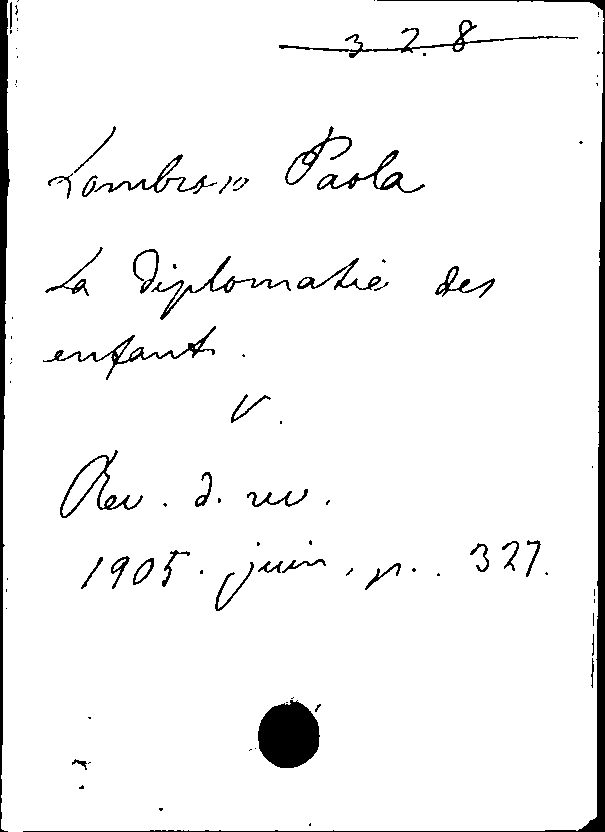 3 2. 8
Lombroso Paola
La diplomatie des
enfants.
V.
Rev. d. rev.
1905. juin, p. 327.